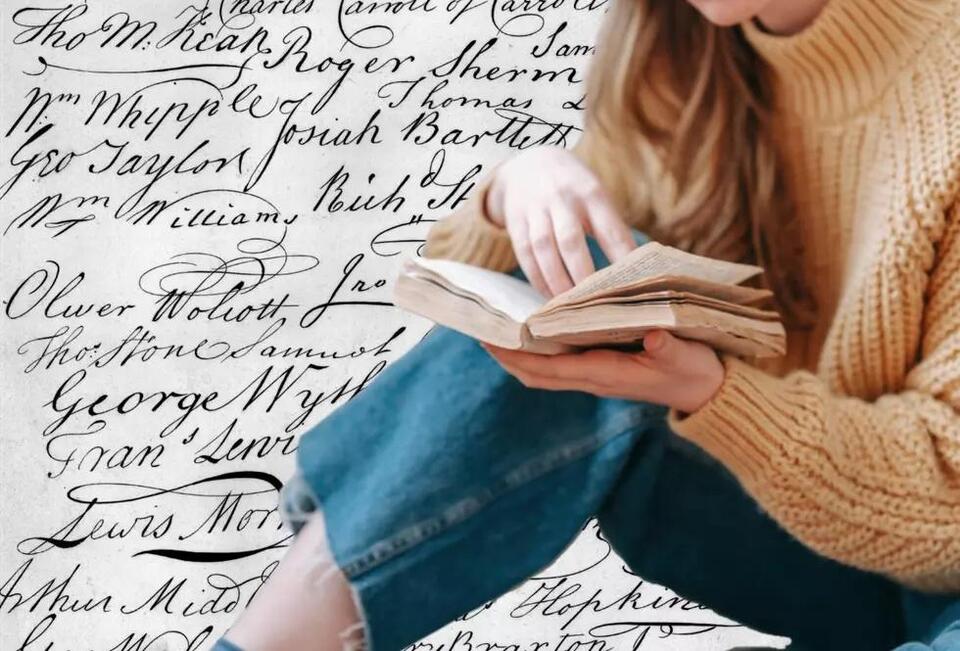 Charles Carroll of Carroll
Tho M. Kean Roger Sherm Sam
Wm Whipple Thomas L
Josiah Bartlett
Geo Taylor
Richd St
Wm Williams
Oliver Wolcott Jno
Thos Stone Samuel
George Wyth
Frans Lewis
Lewis Morr
Arthur Midd
Hopkins
Braxton